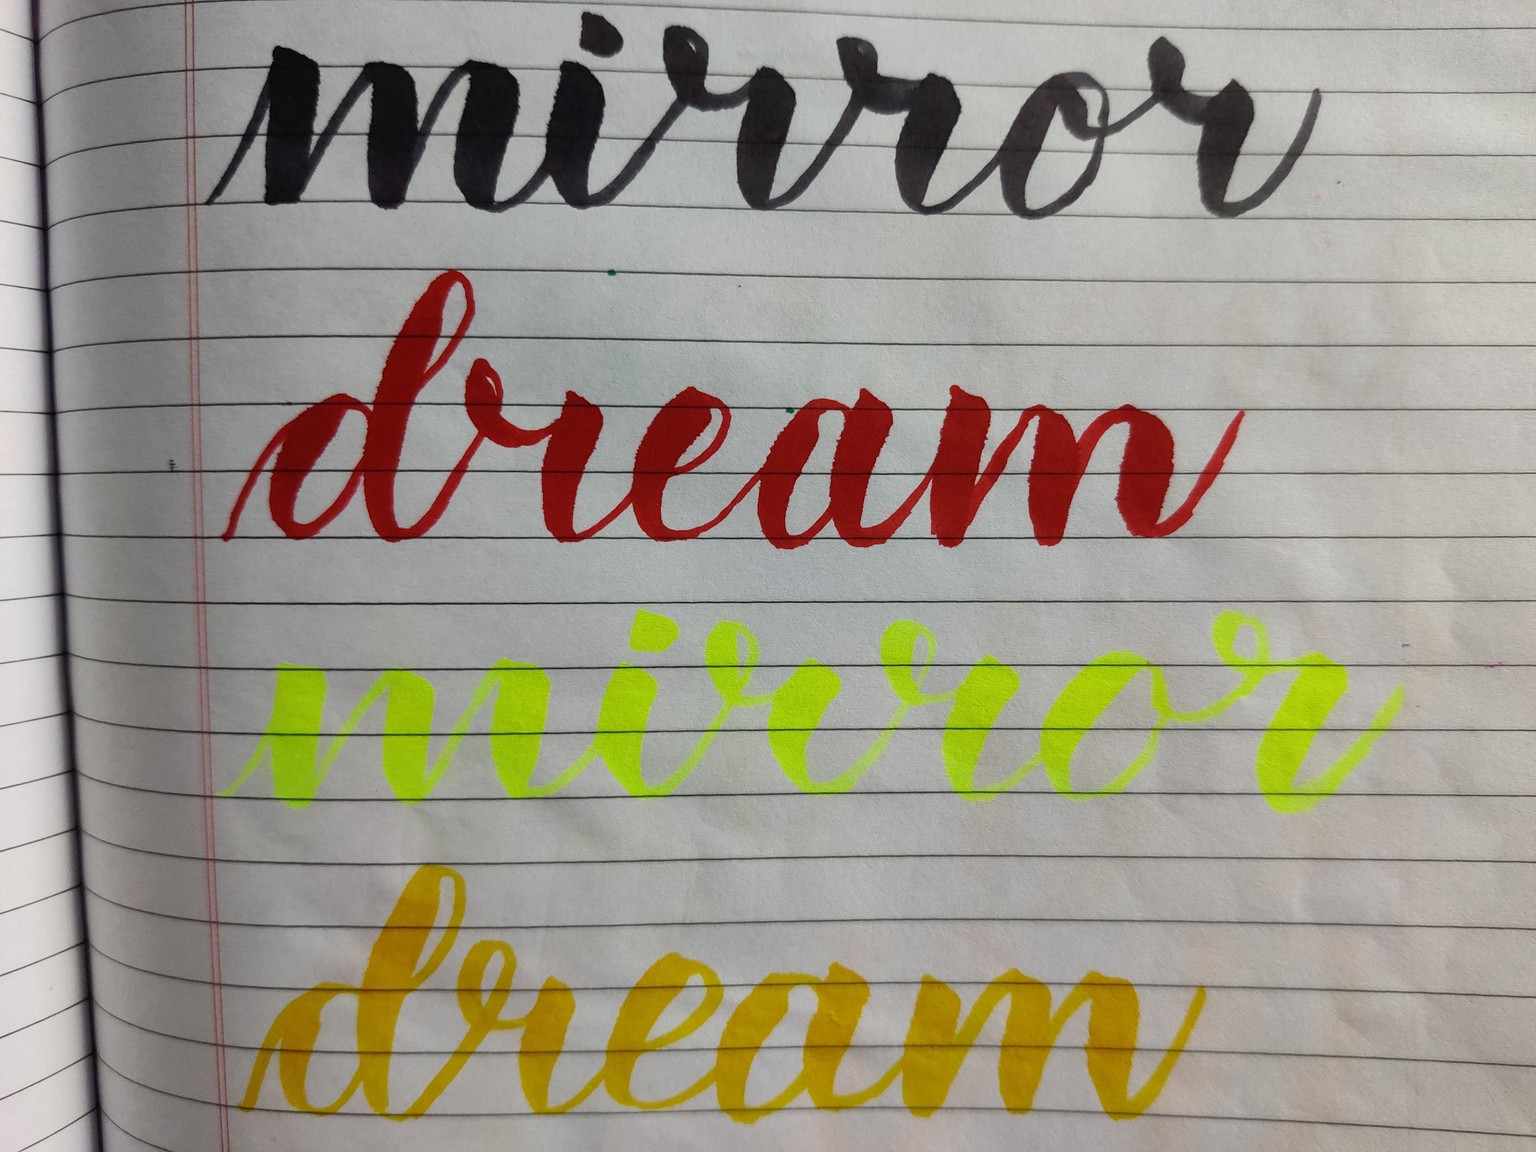 mirror
dream
mirror
dream